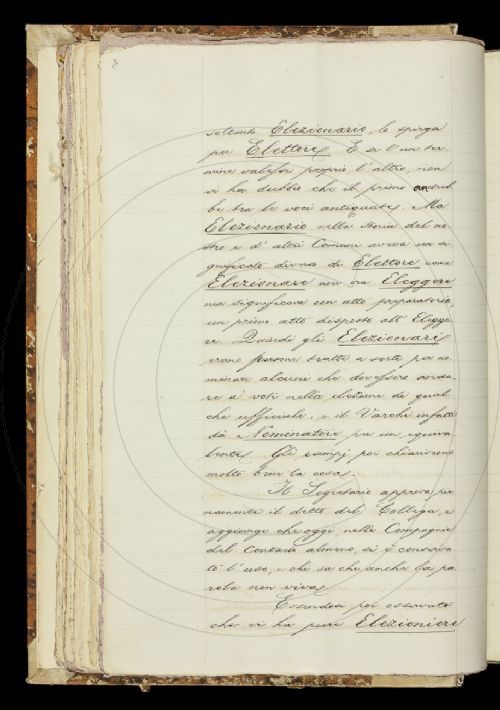 soltanto Elezionario, lo spiega
per Elettore. E se l'un ter
mine valesse proprio l'altro, non
vi ha dubbio che il primo andreb
be tra le voci antiquate. Ma
Elezionario nella storia del no
stro e d'altri Comuni aveva un si
gnificato diverso da Elettore come
Elezionare non era Eleggere
ma significava un atto preparatorio,
un primo atto disposto all'Elegge
re. Quindi gli Elezionari
erano persone tratte a sorte per no
minare alcuni che dovessero anda
re a voti nella elezione di qual
che uffiziale, e il Varchi infatti
dà Nominatori per un equiva
lente. Gli esempi poi chiariscono
molto bene la cosa.
Il Segretario approva pie
namente il detto del Collega, e
aggiunge che oggi, nelle Compagnie
del Contado almeno, si è conserva
to l'uso, e che sa che anche la pa
rola non vive.
Essendosi poi osservato
che vi ha pure Elezioniere